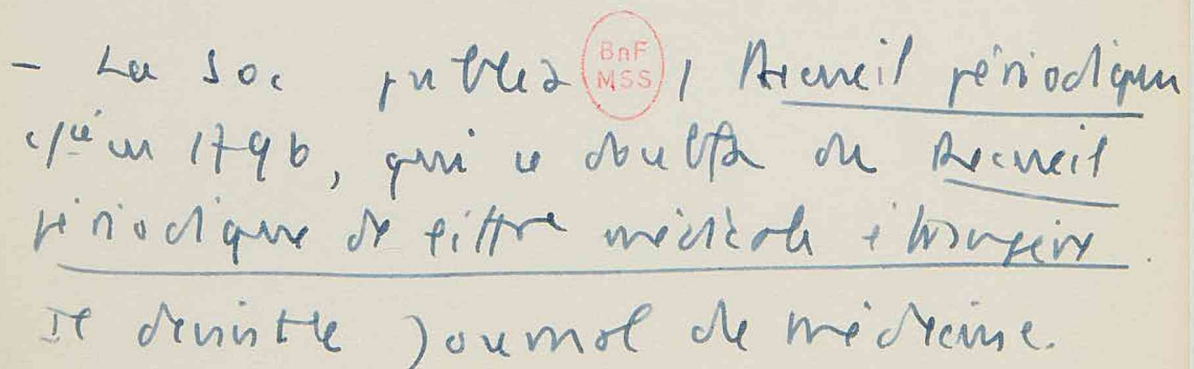 - La Soc publia 1 Recueil périodique
BnF
MSS
en 1796, qui se doubla du Recueil
périodique de littre médicale étrangère.
Il devint le Journal de médecine.